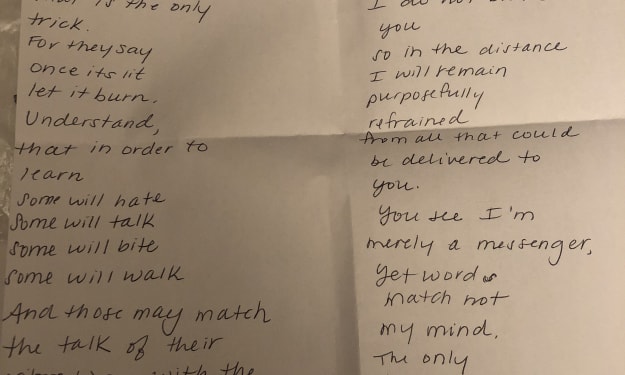 is the only
trick.
For they say
once its lit
let it burn.
Understand,
that in order to
learn
some will hate
some will talk
some will bite
some will walk
And those may match
the talk of their
with the
I do not
you
so in the distance
I will remain
purposefully
refrained
from all that could
be delivered to
you.
You see I'm
merely a messenger,
yet words
match not
my mind.
The only